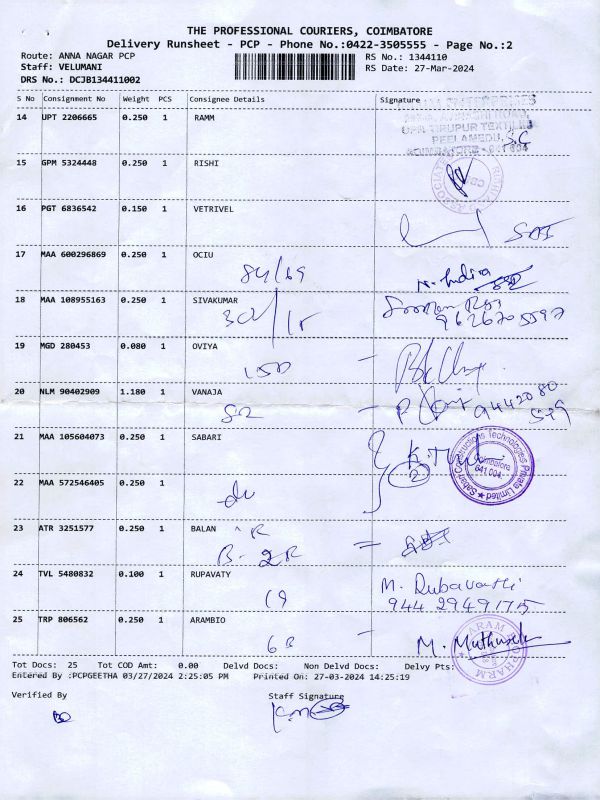 THE PROFESSIONAL COURIERS, COIMBATORE
Delivery Runsheet - PCP - Phone No.:0422-3505555 - Page No.:2
Route: ANNA NAGAR PCP RS No.: 1344110
Staff: VELUMANI RS Date: 27-Mar-2024
DRS No.: DCJB134411002
S No Consignment No Weight PCS Consignee Details Signature
14 UPT 2206665 0.250 1 RAMM
UPN TIRUPUR TEXTILE
PEELAMEDU,
COIMBATORE - 641 004
15 GPM 5324448 0.250 1 RISHI
RISHI ASSOCIATE
CBE
16 PGT 6836542 0.150 1 VETRIVEL
17 MAA 600296869 0.250 1 OCIU
84/69 N. Indira
18 MAA 108955163 0.250 1 SIVAKUMAR
9626705597
19 MGD 280453 0.080 1 OVIYA
150
20 NLM 90402909 1.180 1 VANAJA
82 9442080
529
21 MAA 105604073 0.250 1 SABARI
Sabari Constructions Technologies Private Limited
Coimbatore
641 004
2
22 MAA 572546405 0.250 1
do
23 ATR 3251577 0.250 1 BALAN
B. 2R
24 TVL 5480832 0.100 1 RUPAVATY
M. Rubavathi
944 2949175
25 TRP 806562 0.250 1 ARAMBIO
6B M. Muthuselv
ARAM BIOPHARM
Tot Docs: 25 Tot COD Amt: 0.00 Delvd Docs: Non Delvd Docs: Delvy Pts:
Entered By :PCPGEETHA 03/27/2024 2:25:05 PM Printed On: 27-03-2024 14:25:19
Verified By Staff Signature